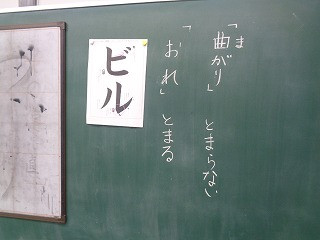 「曲がり」 とまらない
ま
「おれ」 とまる
ビル